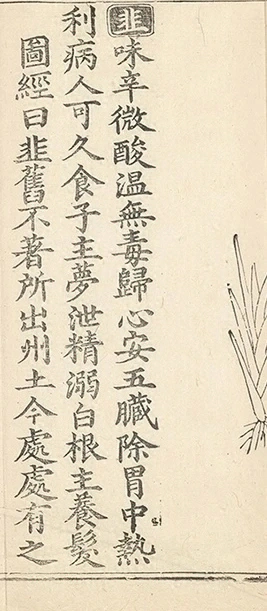 韭味辛微酸温無毒歸心安五臟除胃中熱
利病人可久食子主夢泄精溺白根主養髮
圖經曰韭舊不著所出州土今處處有之